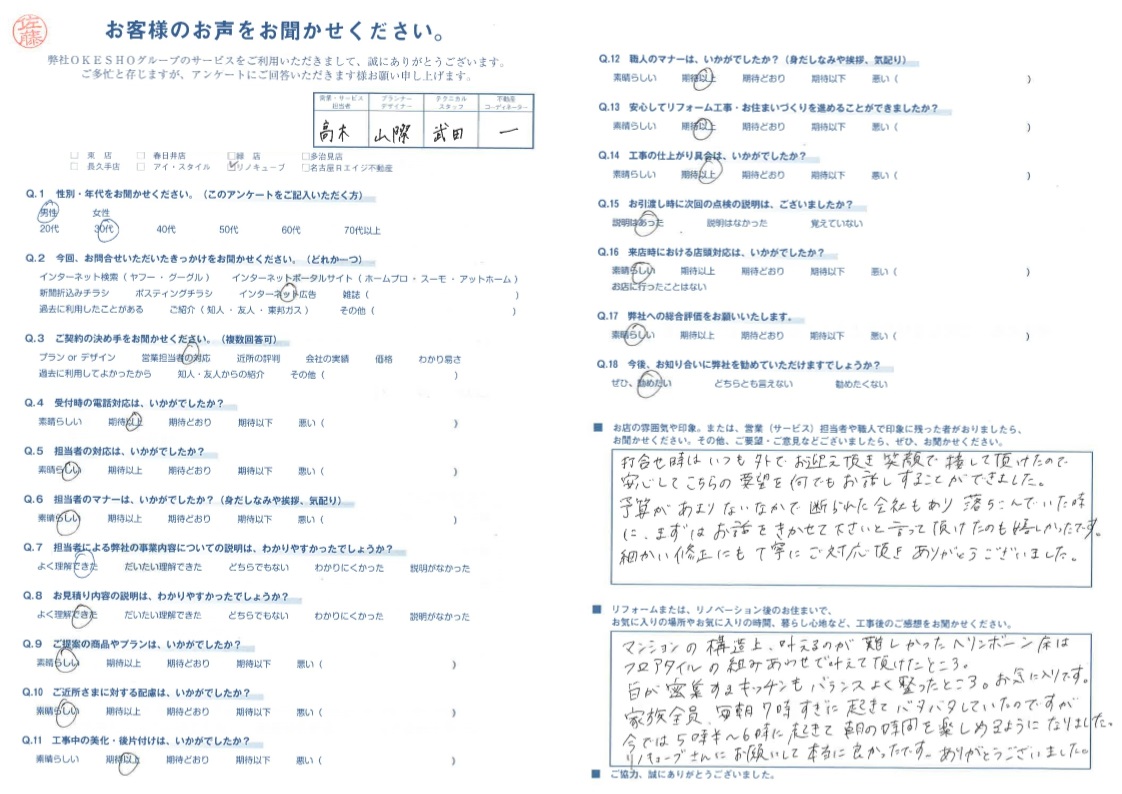 佐藤
お客様のお声をお聞かせください。
弊社OKESHOグループのサービスをご利用いただきまして、誠にありがとうございます。
ご多忙と存じますが、アンケートにご回答いただきます様お願い申し上げます。
営業・サービス担当者 プランナーデザイナー テクニカルスタッフ 不動産コーディネーター
高木 山際 武田 ー
□ 東 店 □ 春日井店 □緑 店 □多治見店
□ 長久手店 □ アイ・スタイル ☑リノキューブ □名古屋Rエイジ不動産
Q.1 性別・年代をお聞かせください。（このアンケートをご記入いただく方）
男性 女性
20代 30代 40代 50代 60代 70代以上
Q.2 今回、お問合せいただいたきっかけをお聞かせください。（どれか一つ）
インターネット検索（ ヤフー ・ グーグル ） インターネットポータルサイト（ ホームプロ ・ スーモ ・ アットホーム ）
新聞折込みチラシ ポスティングチラシ インターネット広告 雑誌（ ）
過去に利用したことがある ご紹介（ 知人 ・ 友人 ・ 東邦ガス ） その他（ ）
Q.3 ご契約の決め手をお聞かせください。（複数回答可）
プラン or デザイン 営業担当者の対応 近所の評判 会社の実績 価格 わかり易さ
過去に利用してよかったから 知人・友人からの紹介 その他（ ）
Q.4 受付時の電話対応は、いかがでしたか？
素晴らしい 期待以上 期待どおり 期待以下 悪い（ ）
Q.5 担当者の対応は、いかがでしたか？
素晴らしい 期待以上 期待どおり 期待以下 悪い（ ）
Q.6 担当者のマナーは、いかがでしたか？（身だしなみや挨拶、気配り）
素晴らしい 期待以上 期待どおり 期待以下 悪い（ ）
Q.7 担当者による弊社の事業内容についての説明は、わかりやすかったでしょうか？
よく理解できた だいたい理解できた どちらでもない わかりにくかった 説明がなかった
Q.8 お見積り内容の説明は、わかりやすかったでしょうか？
よく理解できた だいたい理解できた どちらでもない わかりにくかった 説明がなかった
Q.9 ご提案の商品やプランは、いかがでしたか？
素晴らしい 期待以上 期待どおり 期待以下 悪い（ ）
Q.10 ご近所さまに対する配慮は、いかがでしたか？
素晴らしい 期待以上 期待どおり 期待以下 悪い（ ）
Q.11 工事中の美化・後片付けは、いかがでしたか？
素晴らしい 期待以上 期待どおり 期待以下 悪い（ ）
Q.12 職人のマナーは、いかがでしたか？（身だしなみや挨拶、気配り）
素晴らしい 期待以上 期待どおり 期待以下 悪い（ ）
Q.13 安心してリフォーム工事・お住まいづくりを進めることができましたか？
素晴らしい 期待以上 期待どおり 期待以下 悪い（ ）
Q.14 工事の仕上がり具合は、いかがでしたか？
素晴らしい 期待以上 期待どおり 期待以下 悪い（ ）
Q.15 お引渡し時に次回の点検の説明は、ございましたか？
説明はあった 説明はなかった 覚えていない
Q.16 来店時における店頭対応は、いかがでしたか？
素晴らしい 期待以上 期待どおり 期待以下 悪い（ ）
お店に行ったことはない
Q.17 弊社への総合評価をお願いいたします。
素晴らしい 期待以上 期待どおり 期待以下 悪い（ ）
Q.18 今後、お知り合いに弊社を勧めていただけますでしょうか？
ぜひ、勧めたい どちらとも言えない 勧めたくない
■ お店の雰囲気や印象。または、営業（サービス）担当者や職人で印象に残った者がおりましたら、
お聞かせください。その他、ご要望・ご意見などございましたら、ぜひ、お聞かせください。
打合せ時はいつも外でお迎え頂き笑顔で接して頂けたので
安心してこちらの要望を何でもお話しすることができました。
予算があまりないなかで断られた会社もあり落ちこんでいた時
に、まずはお話をきかせて下さいと言って頂けたのも嬉しかったです。
細かい修正にも丁寧にご対応頂きありがとうございました。
■ リフォームまたは、リノベーション後のお住まいで、
お気に入りの場所やお気に入りの時間、暮らし心地など、工事後のご感想をお聞かせください。
マンションの構造上、叶えるのが難しかったヘリンボーン床は
フロアタイルの組みあわせで叶えて頂けたところ。
目が密集するキッチンもバランスよく整ったところ。お気に入りです。
家族全員、毎朝7時すぎに起きてバタバタしていたのですが
今では5時半〜6時に起きて朝の時間を楽しめるようになりました。
リノキューブさんにお願いして本当に良かったです。ありがとうございました。
■ ご協力、誠にありがとうございました。